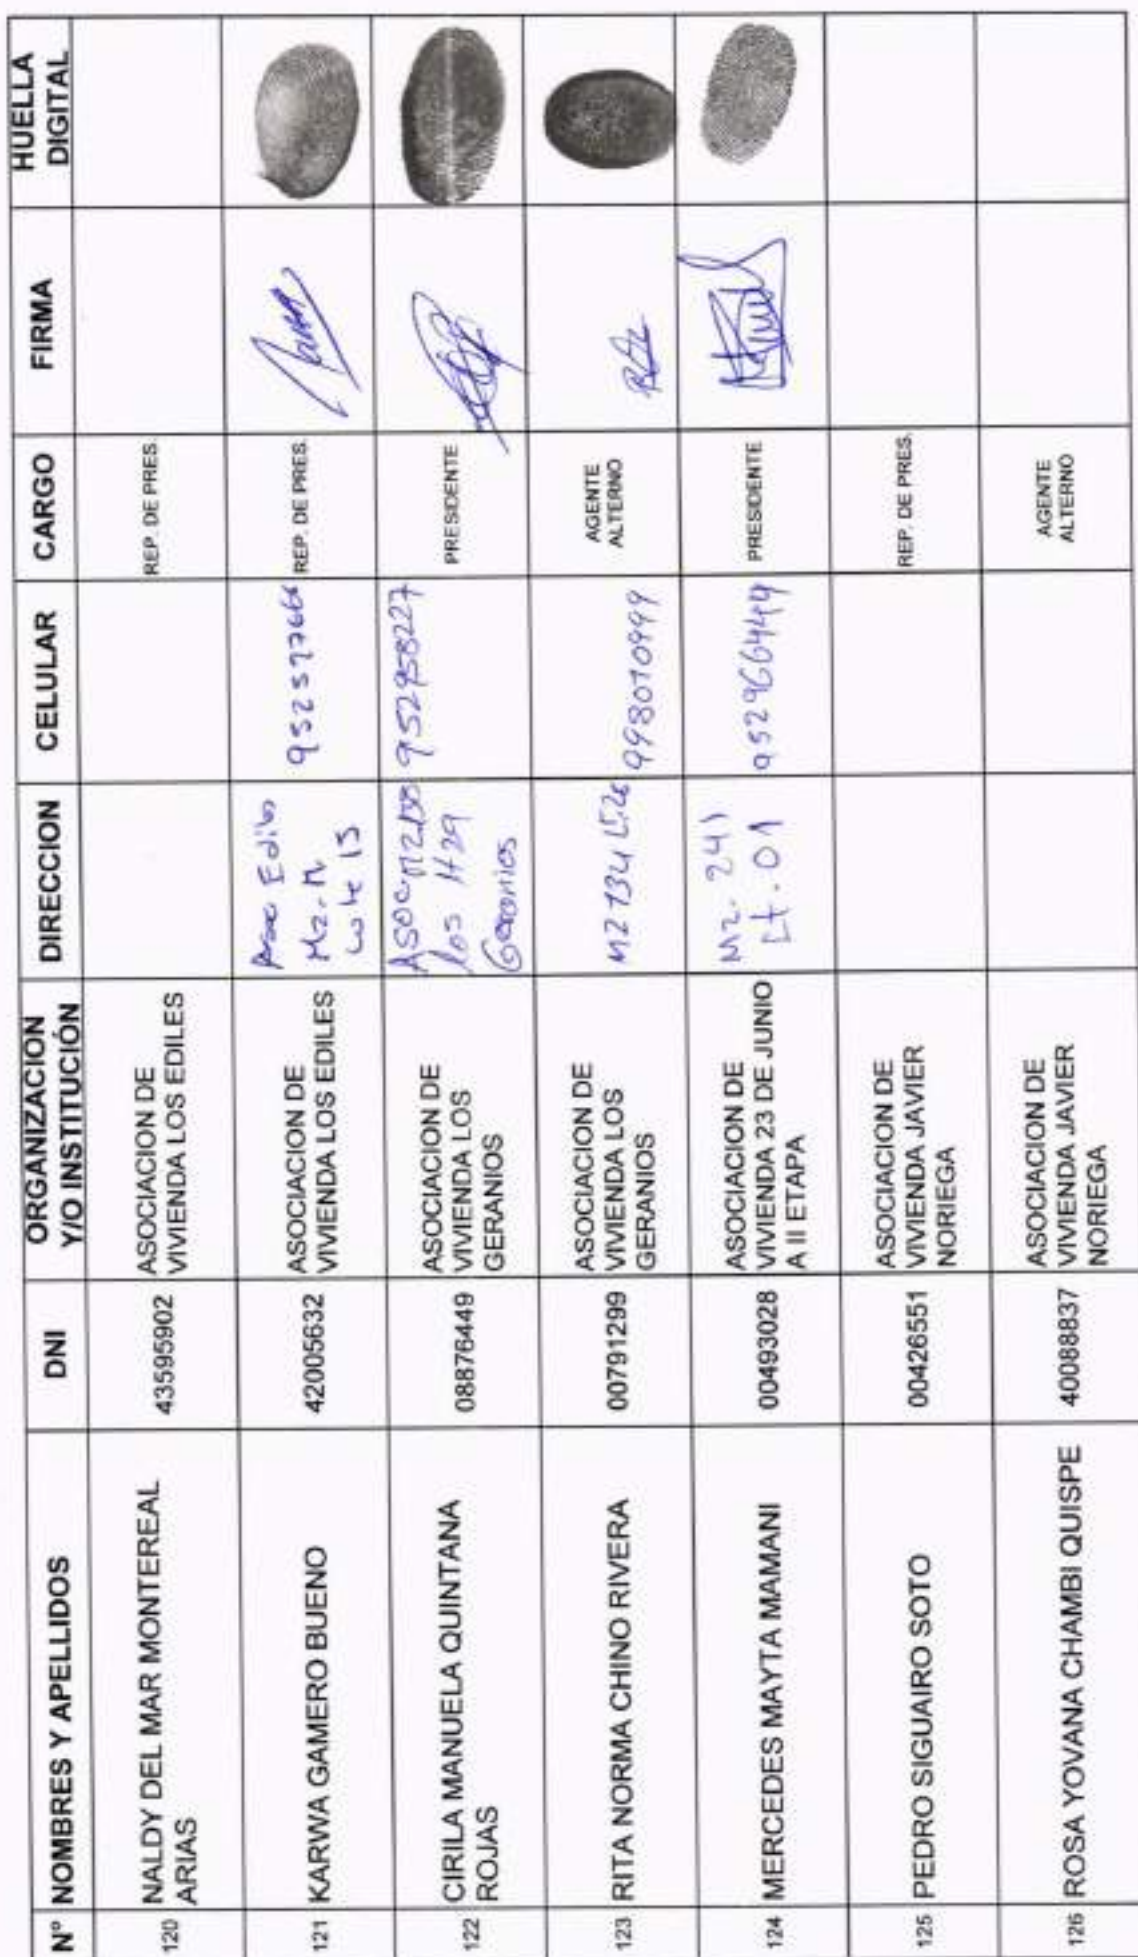 Nº NOMBRES Y APELLIDOS DNI ORGANIZACION Y/O INSTITUCIÓN DIRECCION CELULAR CARGO FIRMA HUELLA DIGITAL
120 NALDY DEL MAR MONTEREAL ARIAS 43595902 ASOCIACION DE VIVIENDA LOS EDILES REP. DE PRES.
121 KARWA GAMERO BUENO 42005632 ASOCIACION DE VIVIENDA LOS EDILES Mz. Lote 15 REP. DE PRES.
122 CIRILA MANUELA QUINTANA ROJAS 08876449 ASOCIACION DE VIVIENDA LOS GERANIOS los H29 Geranios 952958227 PRESIDENTE
123 RITA NORMA CHINO RIVERA 00791299 ASOCIACION DE VIVIENDA LOS GERANIOS 998010999 AGENTE ALTERNO
124 MERCEDES MAYTA MAMANI 00493028 ASOCIACION DE VIVIENDA 23 DE JUNIO A II ETAPA Mz. 241 Lt. 01 952966444 PRESIDENTE
125 PEDRO SIGUAIRO SOTO 00426551 ASOCIACION DE VIVIENDA JAVIER NORIEGA REP. DE PRES.
126 ROSA YOVANA CHAMBI QUISPE 40088837 ASOCIACION DE VIVIENDA JAVIER NORIEGA AGENTE ALTERNO